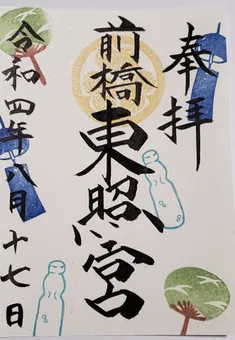 奉拝
前橋東照宮
令和四年八月十七日